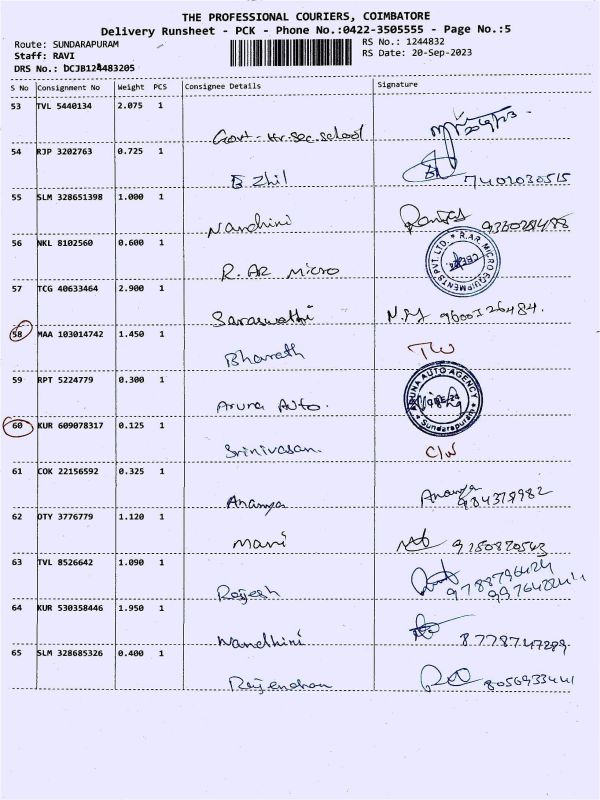 THE PROFESSIONAL COURIERS, COIMBATORE
Delivery Runsheet - PCK - Phone No.:0422-3505555 - Page No.:5
Route: SUNDARAPURAM RS No.: 1244832
Staff: RAVI RS Date: 20-Sep-2023
DRS No.: DCJB124483205
S No Consignment No Weight PCS Consignee Details Signature
53 TVL 5440134 2.075 1
Govt - Hr.sec.school
54 RJP 3202763 0.725 1
E Zhil 7401030515
55 SLM 328651398 1.000 1
Nandhini
56 NKL 8102560 0.600 1
R. AR Micro R.A.R. MICRO EQUIPMENTS PVT. LTD.
57 TCG 40633464 2.900 1
Saraswathi
58 MAA 103014742 1.450 1
Bharath
59 RPT 5224779 0.300 1
Aruna Auto. ARUNA AUTO AGENCY Sundarapuram
60 KUR 609078317 0.125 1
Srinivasan
61 COK 22156592 0.325 1
Ananya Ananya
62 OTY 3776779 1.120 1
Mani
63 TVL 8526642 1.090 1
Rajesh 9788796424
64 KUR 530358446 1.950 1
Nandhini 8778747289
65 SLM 328685326 0.400 1
Rajendran 8056933441